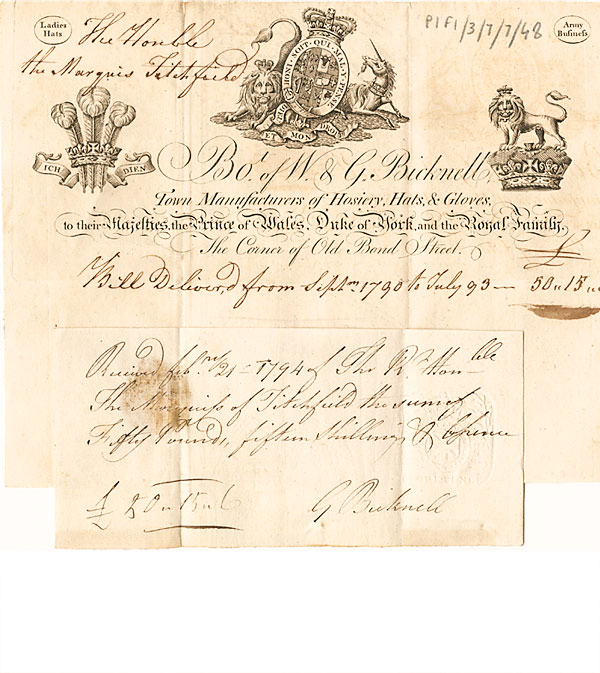 Ladies
Hats
The Honble
the Marquis Titchfield
P1F1/3/7/7/48
Army
Business
HONI·SOIT·QUI·MAL·Y·PENSE
DIEU
ET MON DROIT
ICH DIEN
Bo.t of W. & G. Bicknell,
Town Manufacturers of Hosiery, Hats, & Gloves,
to their Majesties, the Prince of Wales, Duke of York, and the Royal Family.
The Corner of Old Bond Street.
£
Bill Deliver,d from Septm 1790 to July 93 — 50 " 15 "
Received feb.ry 21 = 1794 of The Rt Hon—ble
The Marquiss of Titchfield the sum of
Fifty Pounds, fifteen Shillings & 6 pence
£ 50 " 15 " 6
G Bicknell